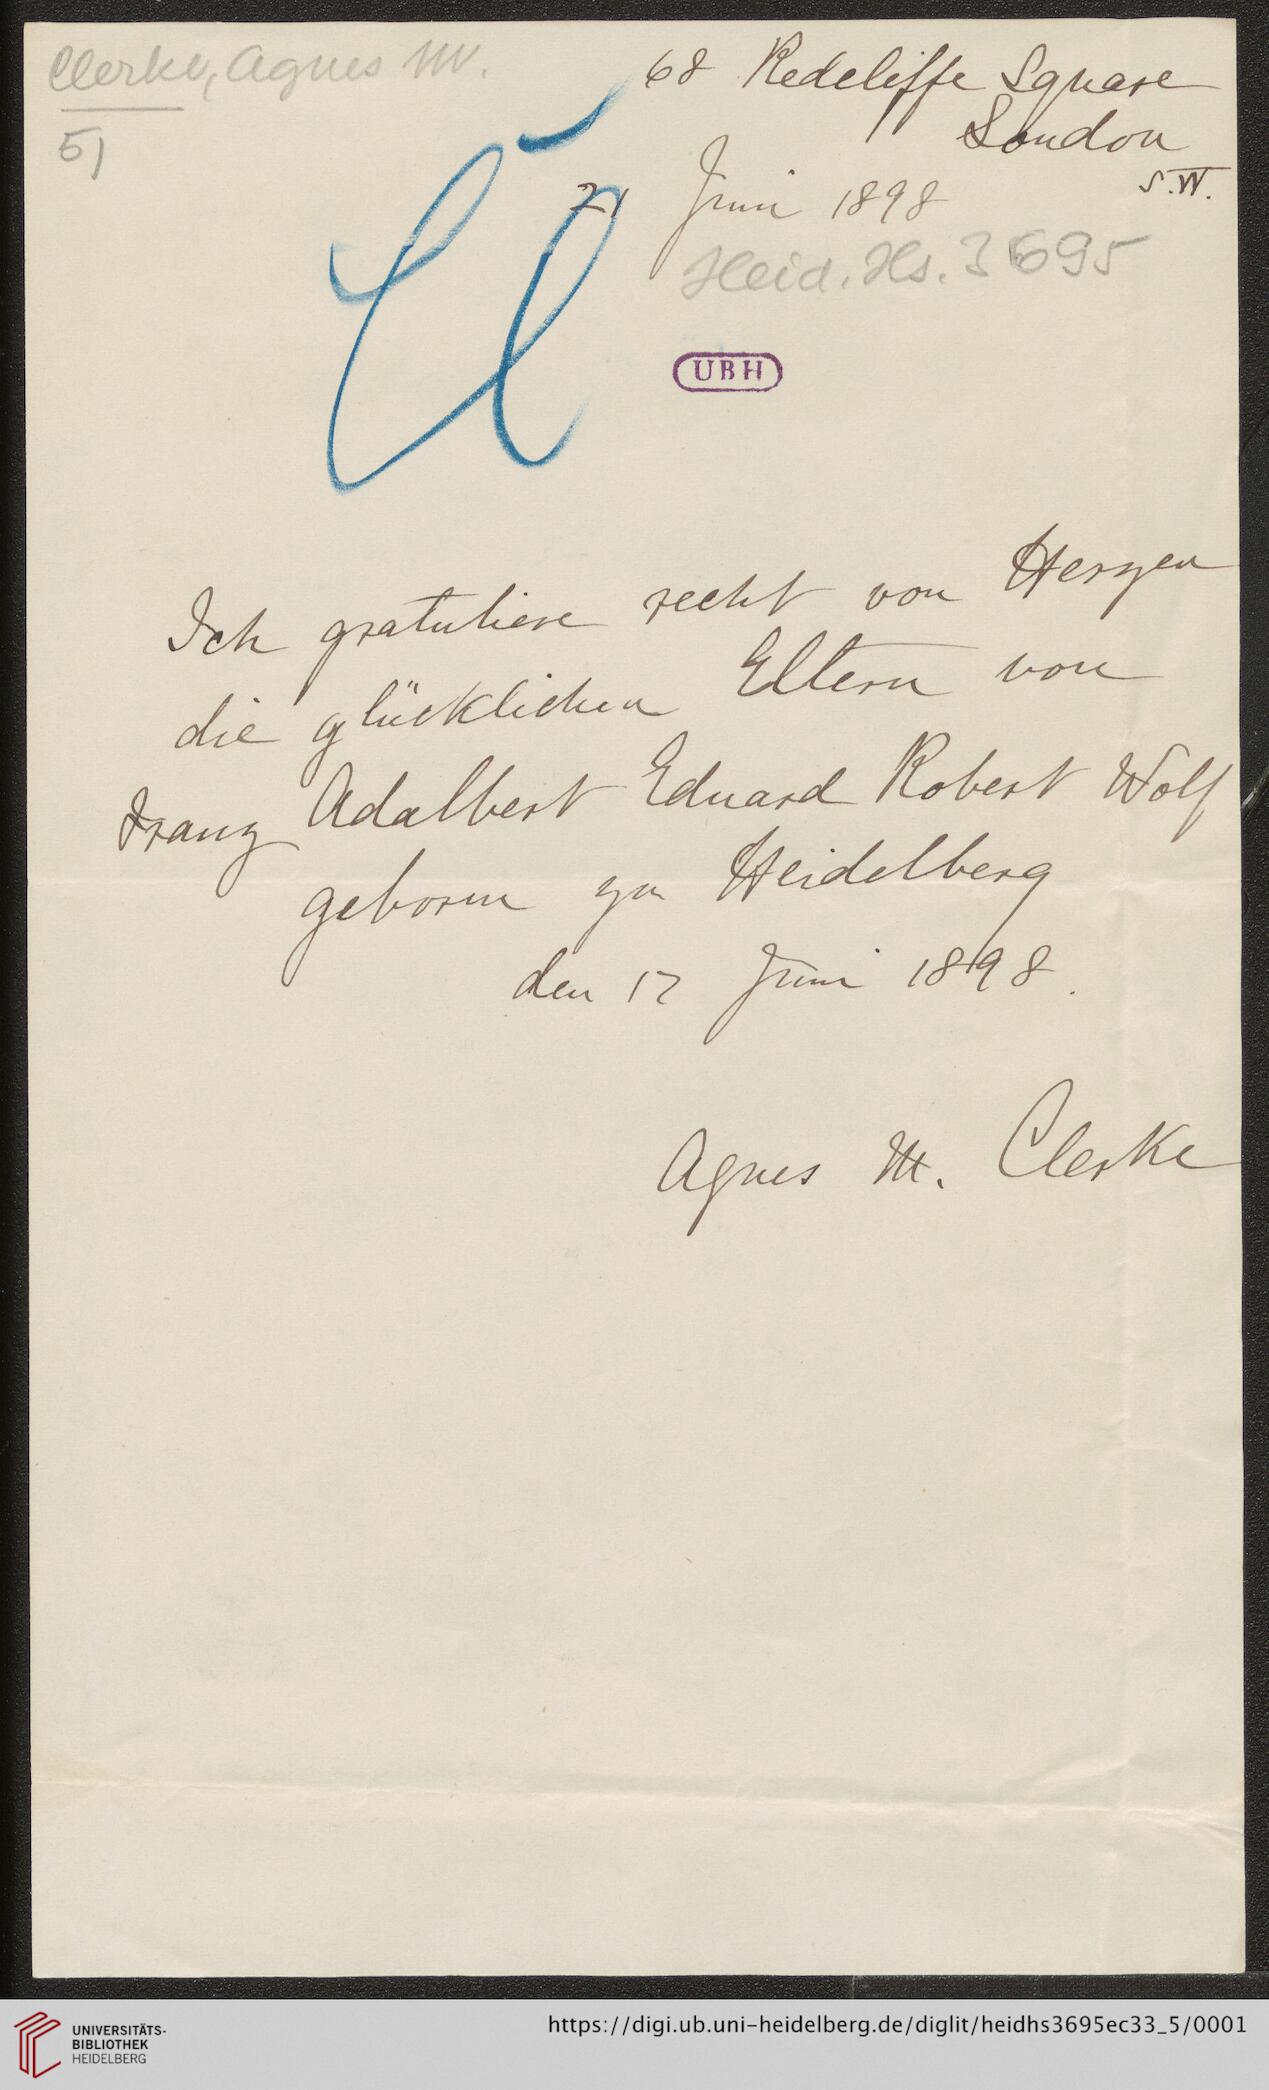 Clerke, Agnes M.
5)
68 Redcliffe Square
London
S.W.
21 Juni 1898
Heid. Hs. 3695
Cl
UBH
Ich gratuliere recht von Herzen
die glücklichen Eltern von
Franz Adalbert Eduard Robert Wolf
geboren zu Heidelberg
den 17 Juni 1898.
Agnes M. Clerke
UNIVERSITÄTS-
BIBLIOTHEK
HEIDELBERG
https://digi.ub.uni-heidelberg.de/diglit/heidhs3695ec33_5/0001